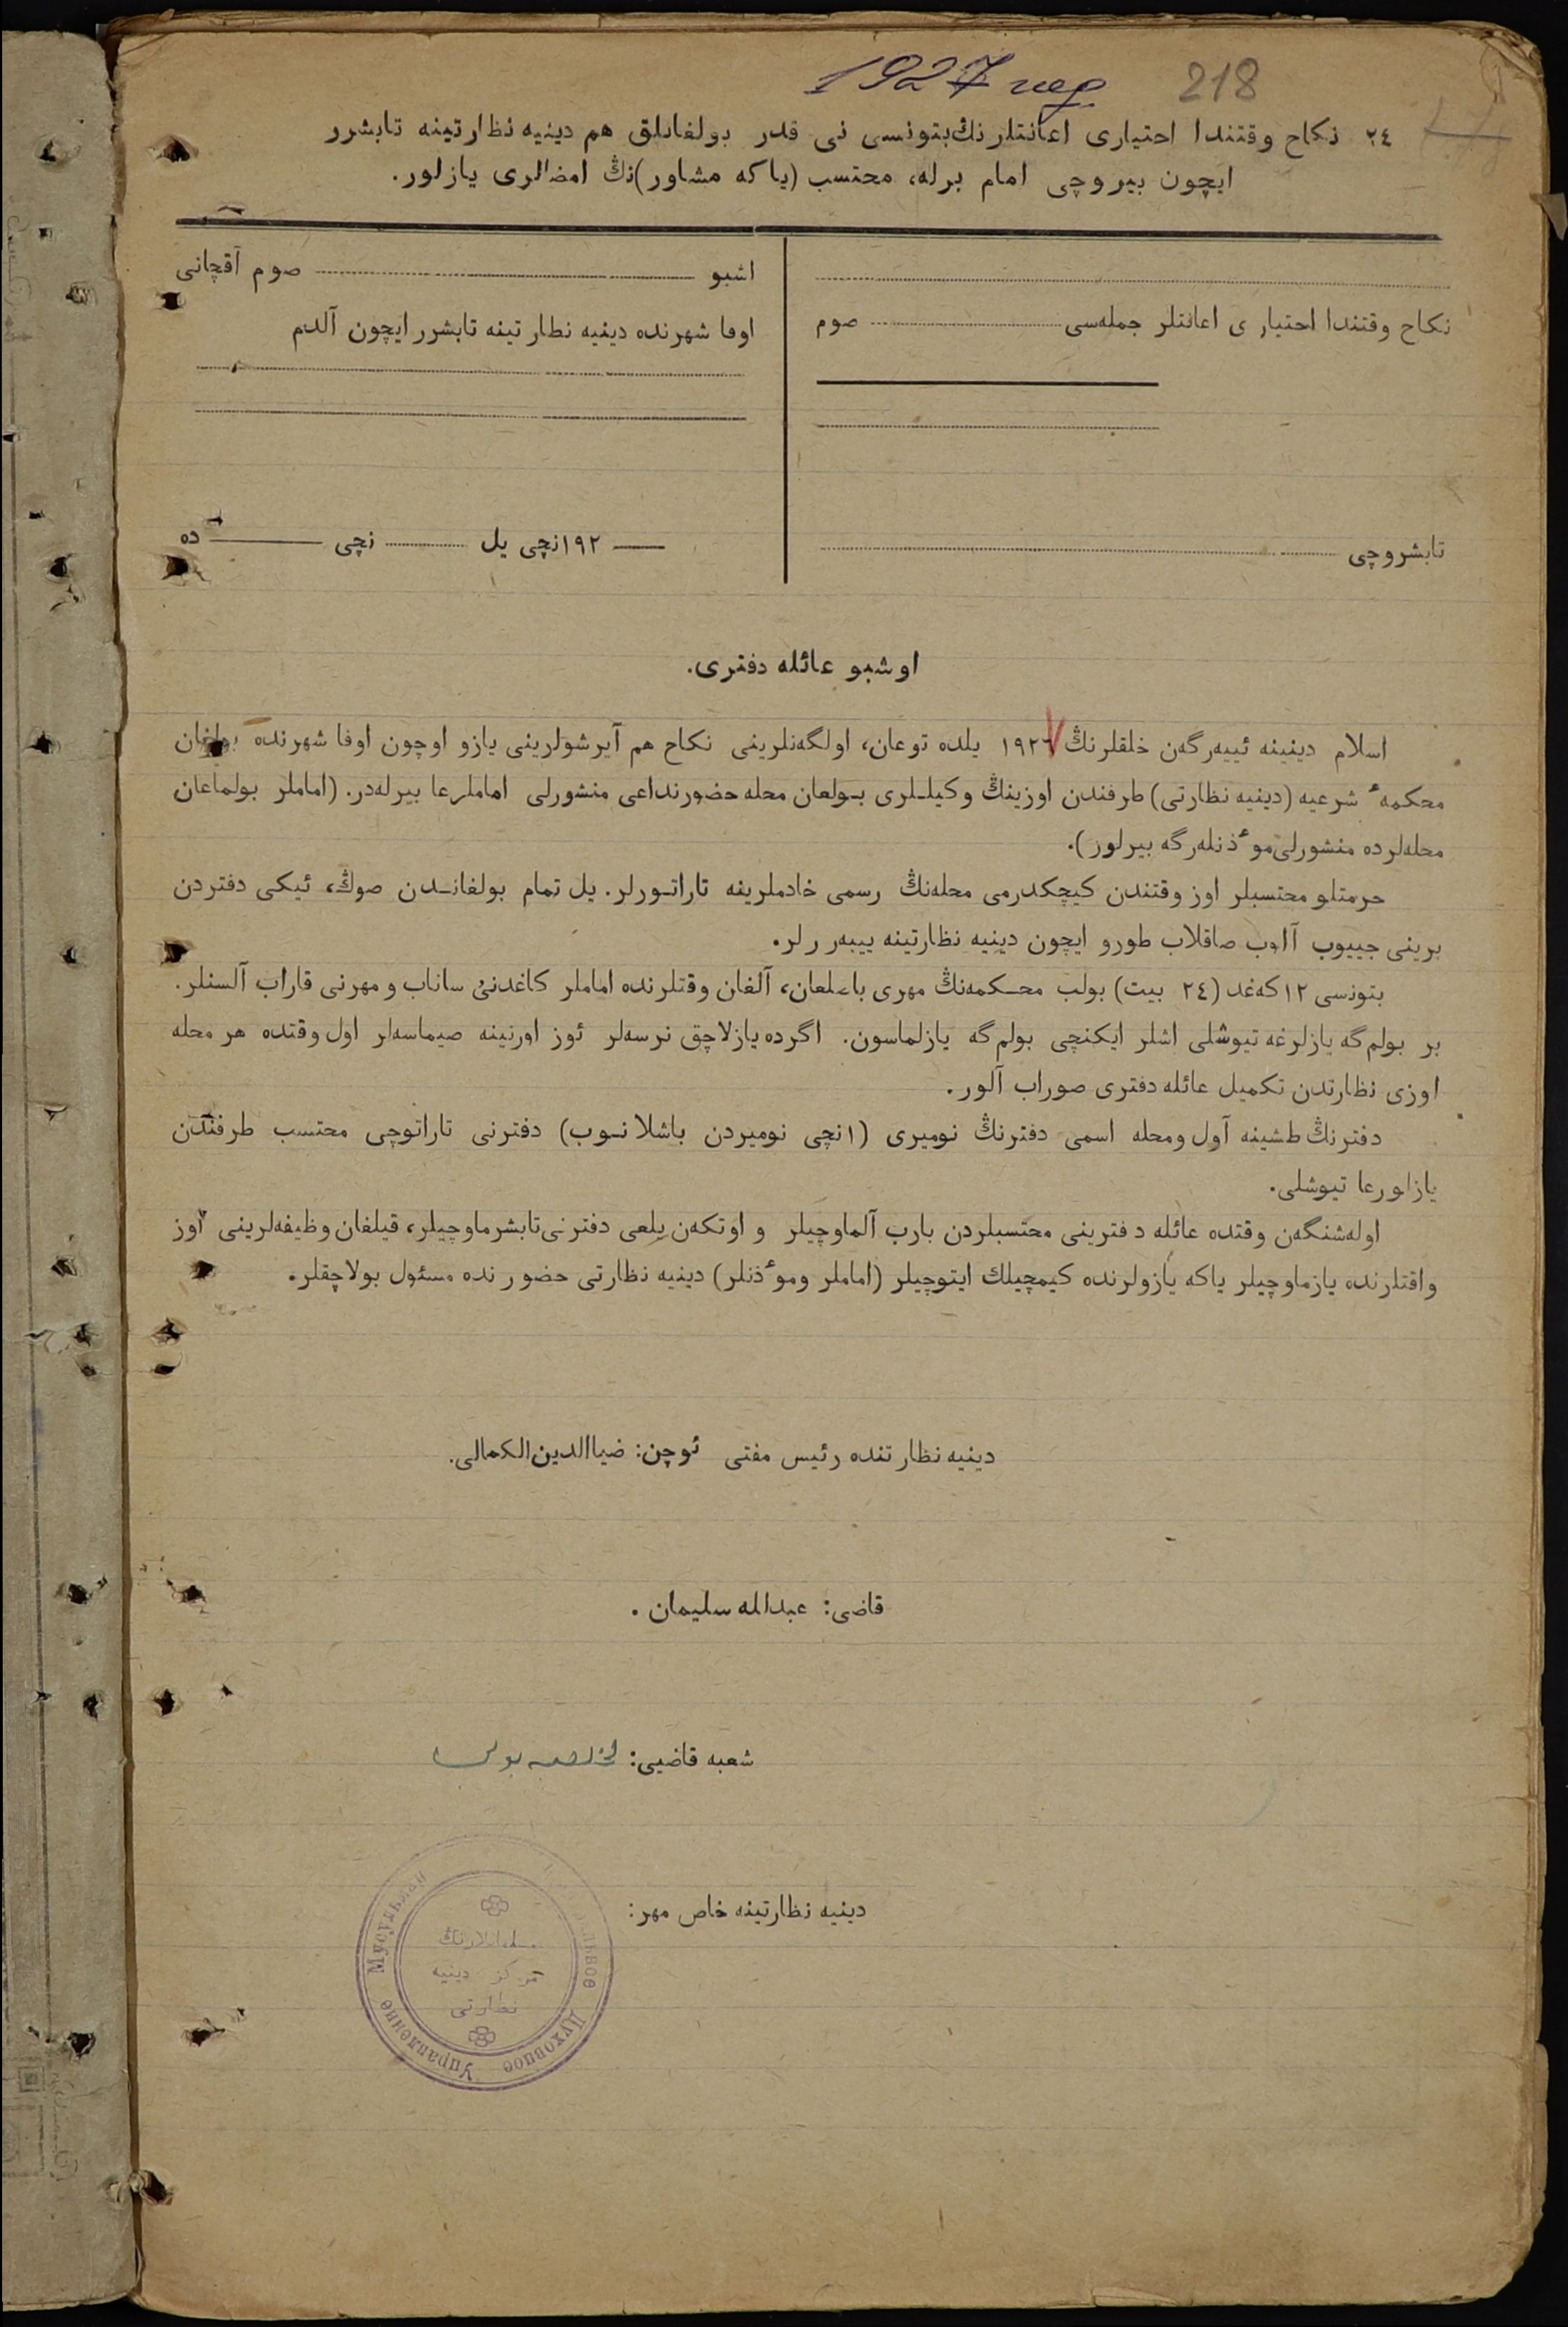 1927 218
٢٤ نكاح وقتندا احتيارى اعانتلرنڭ بتونسى نى قدر بولغانلق هم دينيه نظارتينه تابشرر
ايچون بيروچى امام برله، محتسب (ياكه مشاور)نڭ امضالرى يازلور.
نكاح وقتندا احتيارى اعانتلر جمله‌سى صوم
تابشروچى
اشبو صوم آقچانى
اوفا شهرنده دينيه نظارتينه تابشرر ايچون آلدم
١٩٢ نچى يل نچى ده
اوشبو عائله دفترى.
اسلام دينينه ئييه‌رگه‌ن خلقلرنڭ ١٩٢٧ يلده توعان، اولگه‌نلرينى نكاح هم آيرشولرينى يازو اوچون اوفا شهرنده بولغان
محكمهٔ شرعيه (دينيه نظارتى) طرفندن اوزينڭ وكيللرى بولعان محله حضورنداعى منشورلى اماملرعا بيرله‌در. (اماملر بولماعان
محله‌لرده منشورلى موٴذنله‌رگه بيرلور).
حرمتلو محتسبلر اوز وقتندن كيچكدرمى محله‌نڭ رسمى خادملرينه تاراتورلر. يل تمام بولغاندن صوڭ، ئيكى دفتردن
برينى جييوب آلوب صاقلاب طورو ايچون دينيه نظارتينه ييبه‌ررلر.
بتونسى ١٢ كه‌غد (٢٤ بيت) بولب محكمه‌نڭ مهرى باصلعان، آلغان وقتلرنده اماملر كاغدنى ساناب و مهرنى قاراب آلسنلر.
بر بولم‌گه يازلرغه تيوشلى اشلر ايكنچى بولم‌گه يازلماسون. اگرده يازلاچق نرسه‌لر ئوز اورنينه صيماسه‌لر اول وقتده هر محله
اوزى نظارتدن تكميل عائله دفترى صوراب آلور.
دفترنڭ طشينه آول ومحله اسمى دفترنڭ نوميرى (١ نچى نوميردن باشلانوب) دفترنى تاراتوچى محتسب طرفندن
يازلورعا تيوشلى.
اوله‌شنگه‌ن وقتده عائله دفترينى محتسبلردن بارب آلماوچيلر و اوتكه‌ن يلعى دفترنى تابشرماوچيلر، قيلغان وظيفه‌لرينى اوز
واقتلرنده يازماوچيلر ياكه يازولرنده كيمچيلك ايتوچيلر (اماملر وموٴذنلر) دينيه نظارتى حضورنده مسئول بولاچقلر.
دينيه نظارتنده رئيس مفتى ئوچن: ضيا‌الدين الكمالى.
قاضى: عبدالله سليمان.
شعبه قاضيى:
دينيه نظارتينه خاص مهر:
Духовное Управление Мусульман
مركز دينيه
نظارتى